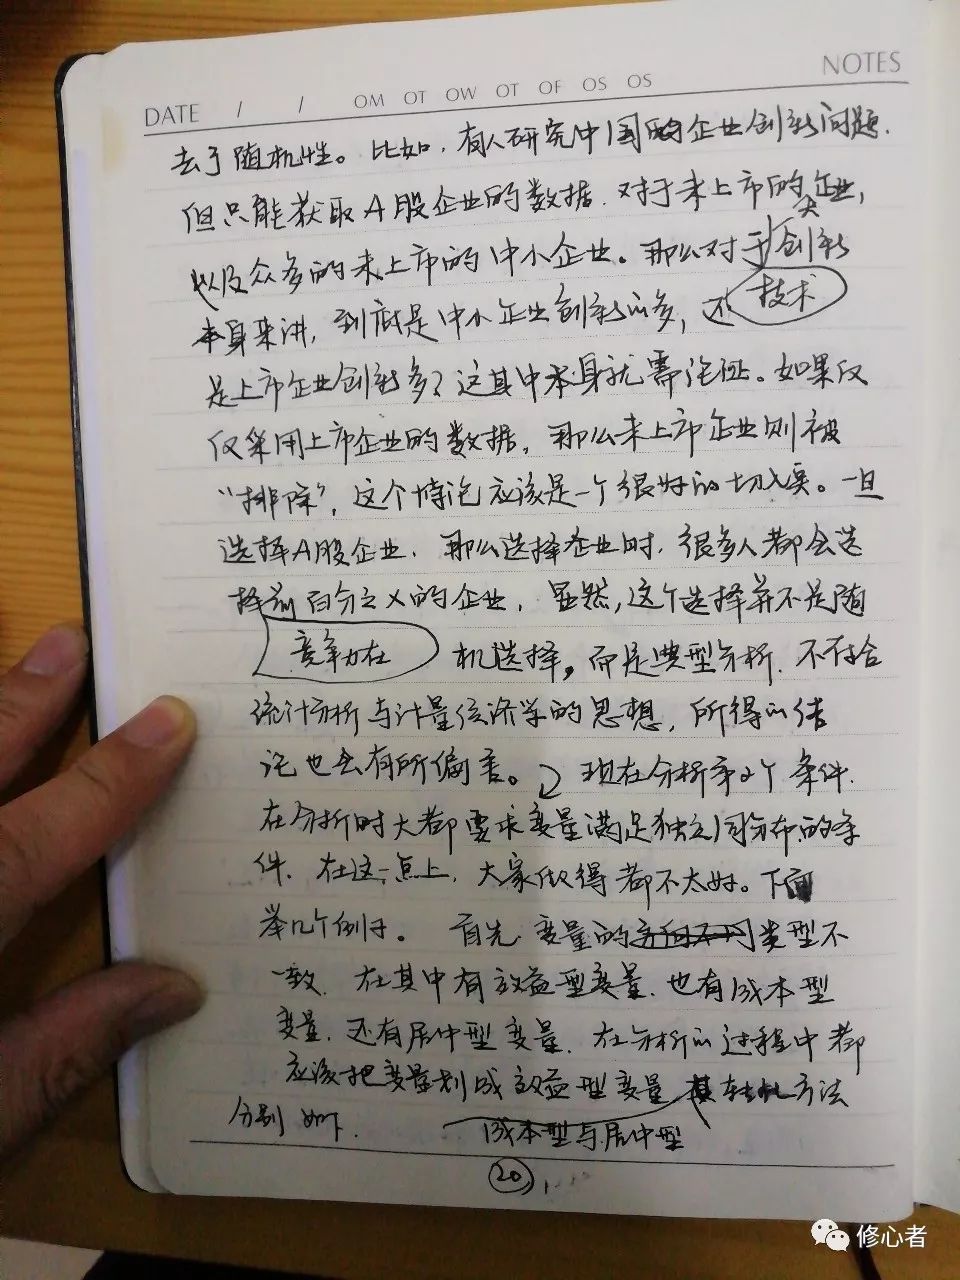 NOTES
DATE / / OM OT OW OT OF OS OS
去了随机性。比如,有人研究中国的企业创新问题.
但只能获取A股企业的数据.对于未上市的大企业,
以及众多的未上市的中小企业。那么对于创新
本身来讲,到底是中小企业创新的多,还
技术
是上市企业创新多?这其中本身就需论证。如果仅
仅采用上市企业的数据,那么未上市企业则被
“排除”,这个悖论应该是一个很好的切入点。一旦
选择A股企业,那么选择企业时,很多人都会选
择前百分之X的企业,显然,这个选择并不是随
竞争力在
机选择,而是典型分析.不符合
统计分析与计量经济学的思想,所得的结
论也会有所偏差。现在分析第2个条件.
在分析时大都要求变量满足独立同分布的条
件.在这一点上,大家做得都不太好。下面
举几个例子。首先.变量的类型不
一致.在其中有效益型变量.也有成本型
变量.还有居中型变量.在分析的过程中都
应该把变量划成效益型变量 其转化方法
分别如下.
成本型与居中型
20
修心者